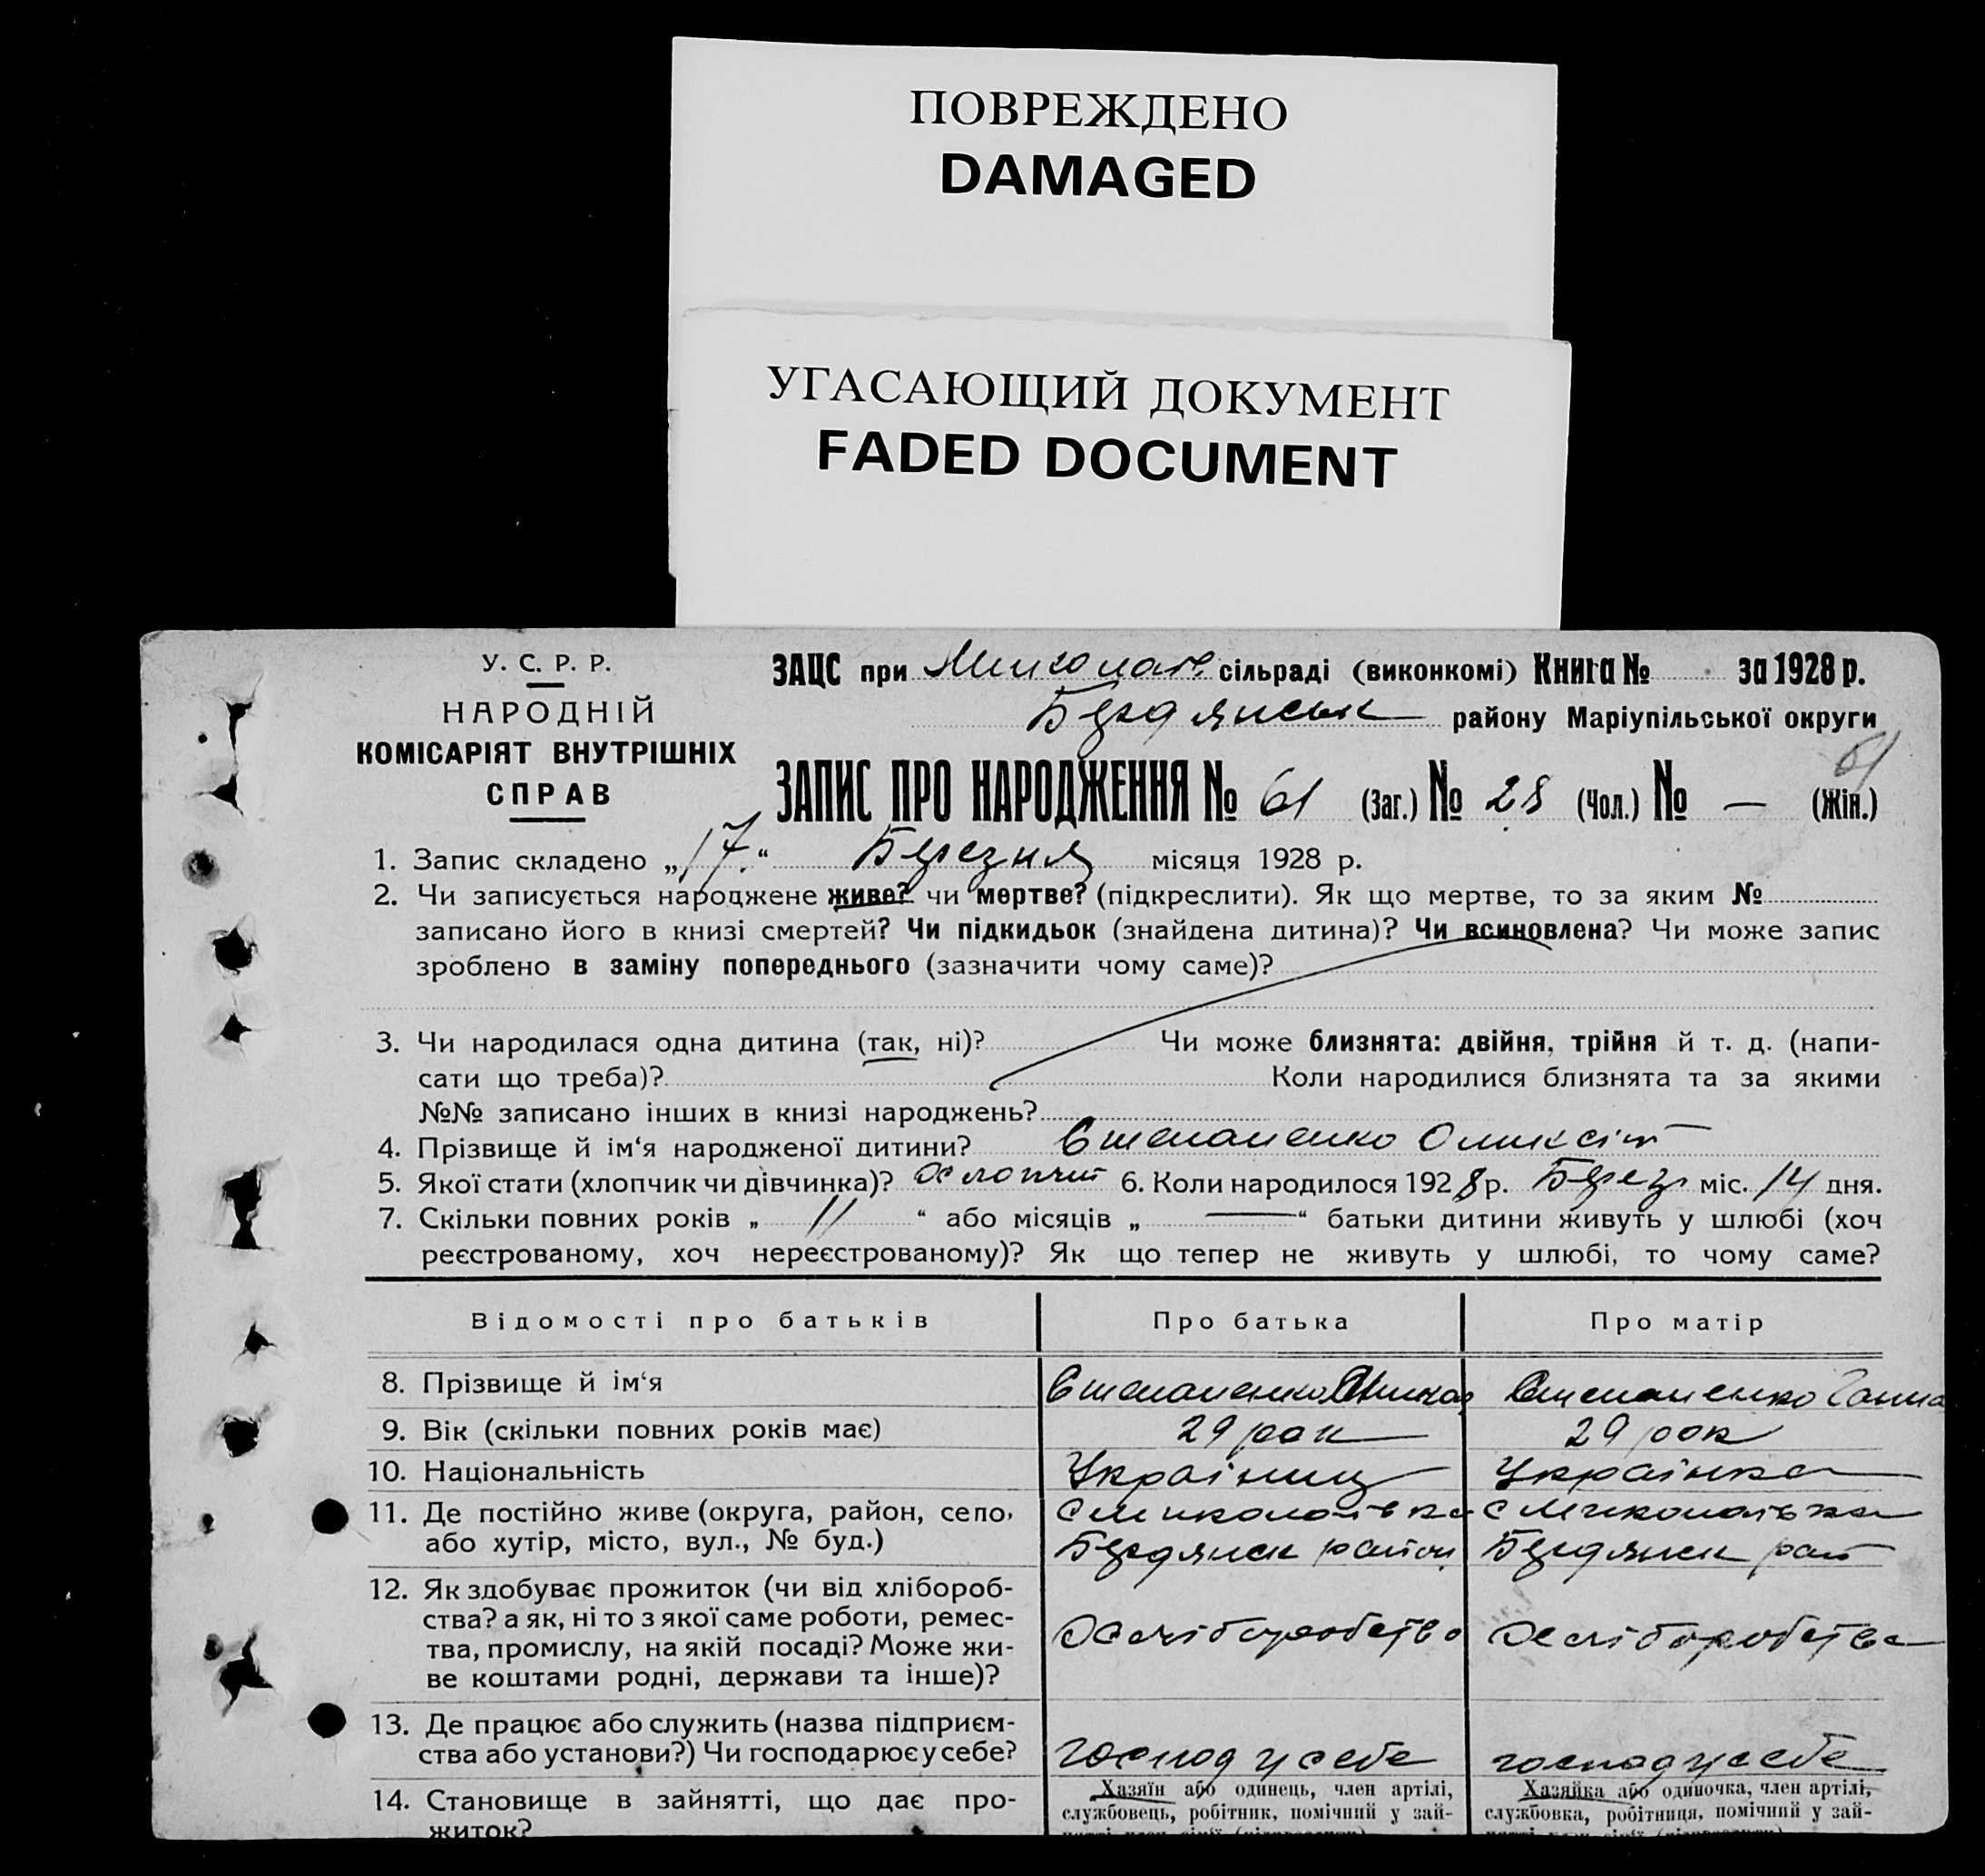 ПОВРЕЖДЕНО
DAMAGED
УГАСАЮЩИЙ ДОКУМЕНТ
FADED DOCUMENT
У. С. Р. Р.
НАРОДНІЙ
КОМІСАРІЯТ ВНУТРІШНІХ
СПРАВ
ЗАЦС при Миколаїв. сільраді (виконкомі) Книга № за 1928 р.
Бердянськ району Маріупільської округи
61
ЗАПИС ПРО НАРОДЖЕННЯ № 61 (Заг.) № 28 (Чол.) № — (Жін.)
1. Запис складено „17“ Березня місяця 1928 р.
2. Чи записується народжене живе? чи мертве? (підкреслити). Як що мертве, то за яким №
записано його в книзі смертей? Чи підкидьок (знайдена дитина)? Чи всиновлена? Чи може запис
зроблено в заміну попереднього (зазначити чому саме)?
3. Чи народилася одна дитина (так, ні)? Чи може близнята: двійня, трійня й т. д. (напи-
сати що треба)? Коли народилися близнята та за якими
№№ записано інших в книзі народжень?
4. Прізвище й ім‘я народженої дитини? Степаненко Оликсій
5. Якої стати (хлопчик чи дівчинка)? Хлопчик 6. Коли народилося 1928 р. Берез міс. 14 дня.
7. Скільки повних років „ 11 “ або місяців „ — “ батьки дитини живуть у шлюбі (хоч
реєстрованому, хоч нереєстрованому)? Як що тепер не живуть у шлюбі, то чому саме?
Відомості про батьків Про батька Про матір
8. Прізвище й ім‘я Степаненко Степаненко Ганна
9. Вік (скільки повних років має) 29 рок 29 рок
10. Національність Українец Українка
11. Де постійно живе (округа, район, село, с Миколаївка с Миколаївка
або хутір, місто, вул., № буд.) Бердянск район Бердянск рай
12. Як здобуває прожиток (чи від хлібороб-
ства? а як, ні то з якої саме роботи, ремес- Хліборобство Хліборобства
тва, промислу, на якій посаді? Може жи-
ве коштами родні, держави та інше)?
13. Де працює або служить (назва підприєм-
ства або установи?) Чи господарює у себе? господ у себе господ у себе
14. Становище в зайнятті, що дає про- Хазяїн або одинець, член артілі, Хазяйка або одиночка, член артілі,
житок? службовець, робітник, помічний у зай- службовка, робітниця, помічний у зай-